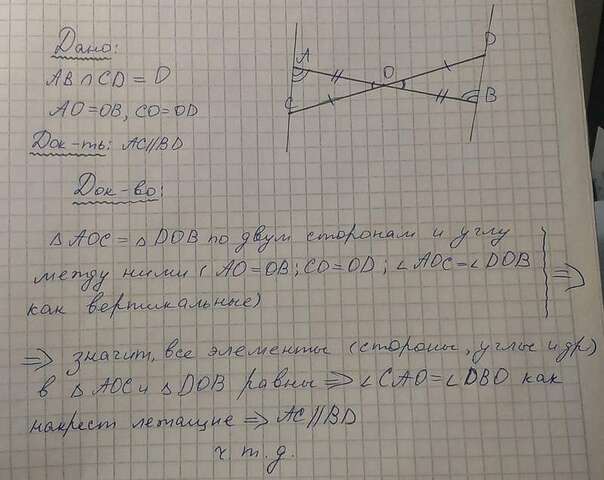 Дано:
AB ∩ CD = D
AO = OB, CO = OD
Док-ть: AC || BD
A
O
D
C
B
Док-во:
△ AOC = △ DOB по двум сторонам и углу
между ними ( AO = OB ; CO = OD ; ∠ AOC = ∠ DOB
как вертикальные) ⇒
⇒ значит, все элементы (стороны, углы и др)
в △ AOC и △ DOB равны ⇒ ∠ CAO = ∠ DBO как
накрест лежащие ⇒ AC || BD
ч. т. д.